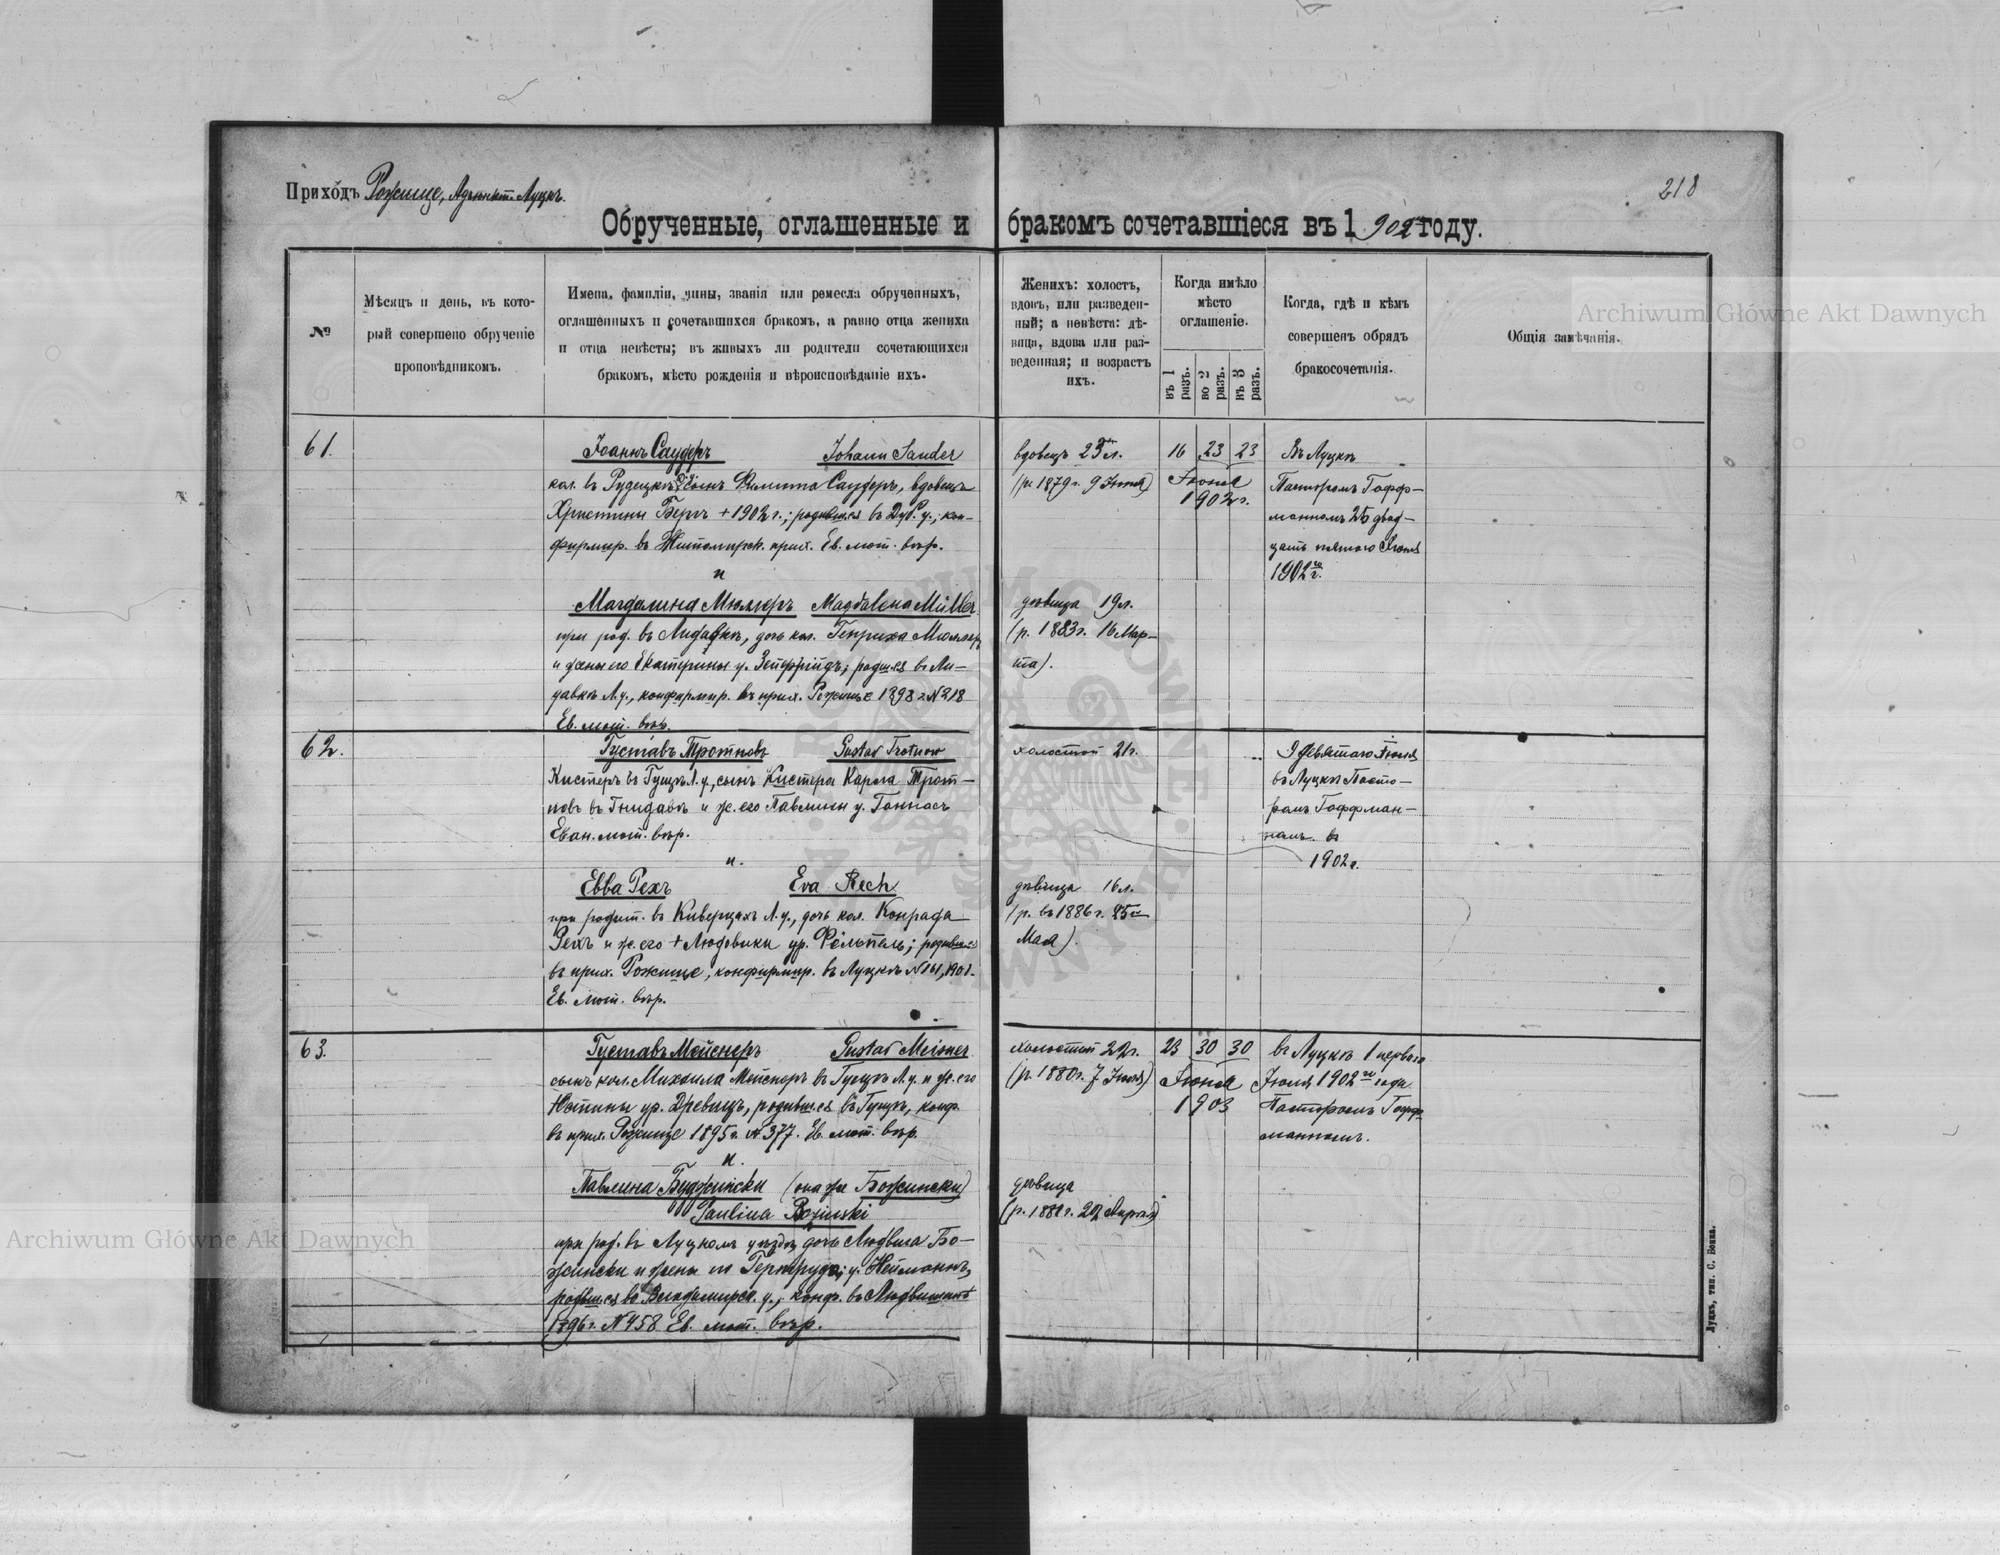 Приходъ Рожище, Адъюнкт. Луцкъ.
218
Обрученные, оглашенные и бракомъ сочетавшіеся въ 1902 году.
№
Мѣсяцъ и день, въ кото-
рый совершено обрученіе
проповѣдникомъ.
Имена, фамиліи, чины, званія или ремесла обрученныхъ,
оглашенныхъ и сочетавшихся бракомъ, а равно отца жениха
и отца невѣсты; въ живыхъ ли родители сочетающихся
бракомъ, мѣсто рожденія и вѣроисповѣданіе ихъ.
Женихъ: холостъ,
вдовъ, или разведен-
ный; а невѣста: дѣ-
вица, вдова или раз-
веденная; и возрастъ
ихъ.
Когда имѣло
мѣсто
оглашеніе.
въ 1 разъ.
во 2 разъ.
въ 3 разъ.
Когда, гдѣ и кѣмъ
совершенъ обрядъ
бракосочетанія.
Общія замѣчанія.
61.
Іоаннъ Саудеръ Johann Sauder
кол. въ сынъ Филиппа Саудеръ, вдовецъ
Христины Бергъ + 1902 г.; родивш.ся въ Дуб. у.; кон-
фирмир. въ Житомирск. прих. Ев. лют. вѣр.
и
Магдалина Мюллеръ Magdalena Müller
при род. въ дочь кол. Генриха Мюллеръ
и жены его Екатерины у. родш.ся въ Ли-
давкѣ Л.у., конфирмир. въ прих. Рожище 1898 г. N 218
Ев. лют. вѣр.
вдовецъ 23 л.
(р. 1879 г. 9 Іюня)
16 23 23
Іюня
1902 г.
Въ Луцкѣ
Пасторомъ Гофф-
манномъ 25 двад-
цать пятого Іюня
1902 г.
дѣвица 19 л.
(р. 1883 г. 16 Мар-
та).
62.
Густавъ Тротновъ Gustav Trotnow
Кистеръ въ Гущѣ Л.у., сынъ Кистера Карла Трот-
новъ въ Гнидавѣ и ж. его Павлины у.
Еван. лют. вѣр.
и.
Евва Рехъ Eva Rech
при родит. въ Киверцахъ Л.у., дочь кол. Конрада
Рехъ и ж. его + Людовики ур. родивш.ся
въ прих. Рожище, конфирмир. въ Луцкѣ N 161, 1901.
Ев. лют. вѣр.
холостой 21 г.
9 девятаго Іюля
въ Луцкѣ Пасто-
ромъ Гоффман-
номъ въ
1902 г.
дѣвица 16 л.
(р. въ 1886 г. 25го
Мая).
63.
Густавъ Мейснеръ Gustav Meisner
сынъ кол. Михаила Мейснеръ въ Гущѣ Л.у. и ж. его
Юстины ур. Древицъ, родивш.ся въ Гущѣ, конф.
въ прих. Рожище 1895 г. N 377. Ев. лют. вѣр.
и.
Павлина Буджински (она же Божински)
Paulina Bozinski
при род. въ Луцкомъ уѣздѣ, дочь Людвига Бо-
жински и жены его Гертруда; у. Нейманнъ,
родивш.ся въ Владимирск. у., конф. въ
1896 г. N 458 Ев. лют. вѣр.
холостой 22 г.
(р. 1880 г. 7 Іюня)
23 30 30
Іюня
1903
въ Луцкѣ 1 перваго
Іюля 1902 го года
Пасторомъ Гофф-
манномъ.
дѣвица
(р. 1881 г. 22 Апрѣля)
Луцкъ, тип. С. Бокка.
Archiwum Główne Akt Dawnych
Archiwum Główne Akt Dawnych